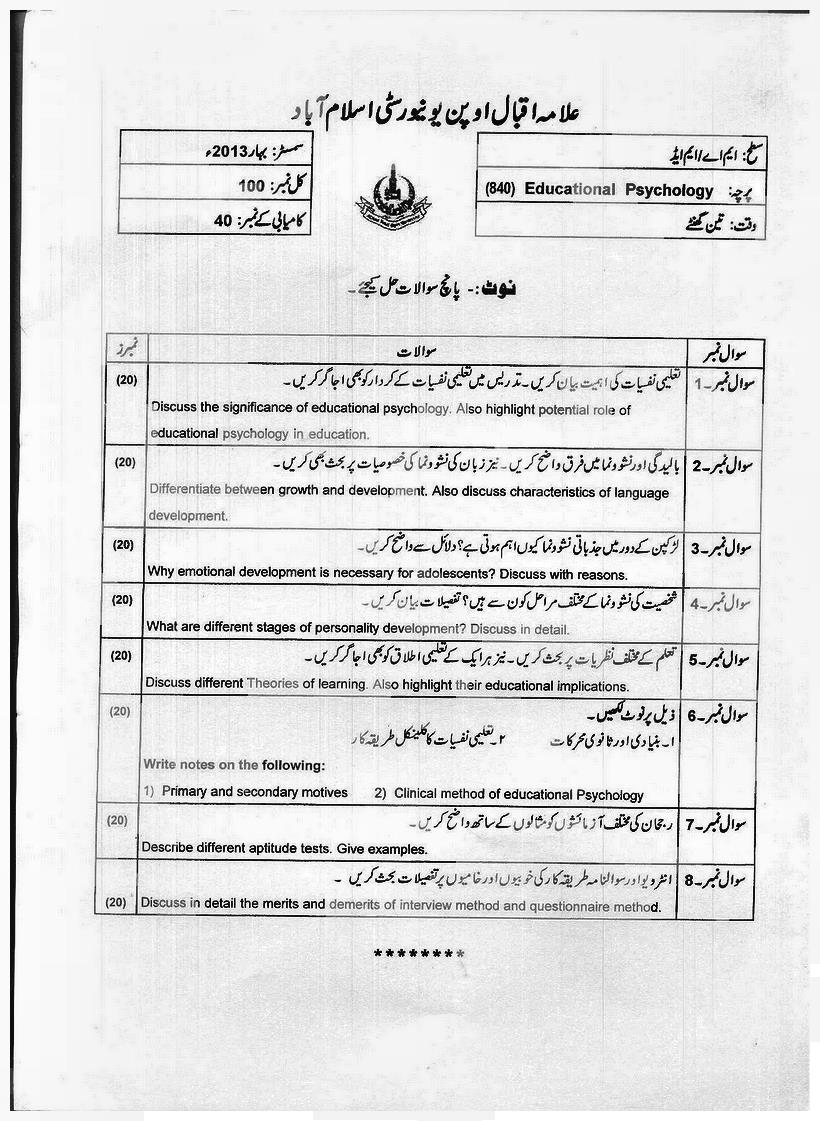 علامہ اقبال اوپن یونیورسٹی اسلام آباد
سطح: ایم اے/ ایم ایڈ
پرچہ: Educational Psychology (840)
وقت: تین گھنٹے
سمسٹر: بہار 2013ء
کل نمبر: 100
کامیابی کے نمبر: 40
نوٹ:- پانچ سوالات حل کیجئے۔
سوال نمبر سوالات نمبرز
سوال نمبر۔1 تعلیمی نفسیات کی اہمیت بیان کریں۔ تدریس میں تعلیمی نفسیات کے کردار کو بھی اجاگر کریں۔ (20)
Discuss the significance of educational psychology. Also highlight potential role of
educational psychology in education.
سوال نمبر۔2 بالیدگی اور نشوونما میں فرق واضح کریں۔ نیز زبان کی نشوونما کی خصوصیات پر بحث بھی کریں۔ (20)
Differentiate between growth and development. Also discuss characteristics of language
development.
سوال نمبر۔3 لڑکپن کے دور میں جذباتی نشوونما کیوں اہم ہوتی ہے؟ دلائل سے واضح کریں۔ (20)
Why emotional development is necessary for adolescents? Discuss with reasons.
سوال نمبر۔4 شخصیت کی نشوونما کے مختلف مراحل کون سے ہیں؟ تفصیلات بیان کریں۔ (20)
What are different stages of personality development? Discuss in detail.
سوال نمبر۔5 تعلم کے مختلف نظریات پر بحث کریں۔ نیز ہر ایک کے تعلیمی اطلاق کو بھی اجاگر کریں۔ (20)
Discuss different Theories of learning. Also highlight their educational implications.
سوال نمبر۔6 ذیل پر نوٹ لکھیں۔ (20)
۱۔ بنیادی اور ثانوی محرکات ۲۔ تعلیمی نفسیات کا کلینکل طریقہ کار
Write notes on the following:
1) Primary and secondary motives 2) Clinical method of educational Psychology
سوال نمبر۔7 رجحان کی مختلف آزمائشوں کو مثالوں کے ساتھ واضح کریں۔ (20)
Describe different aptitude tests. Give examples.
سوال نمبر۔8 انٹرویو اور سوالنامہ طریقہ کار کی خوبیوں اور خامیوں پر تفصیلات بحث کریں۔
Discuss in detail the merits and demerits of interview method and questionnaire method. (20)
********